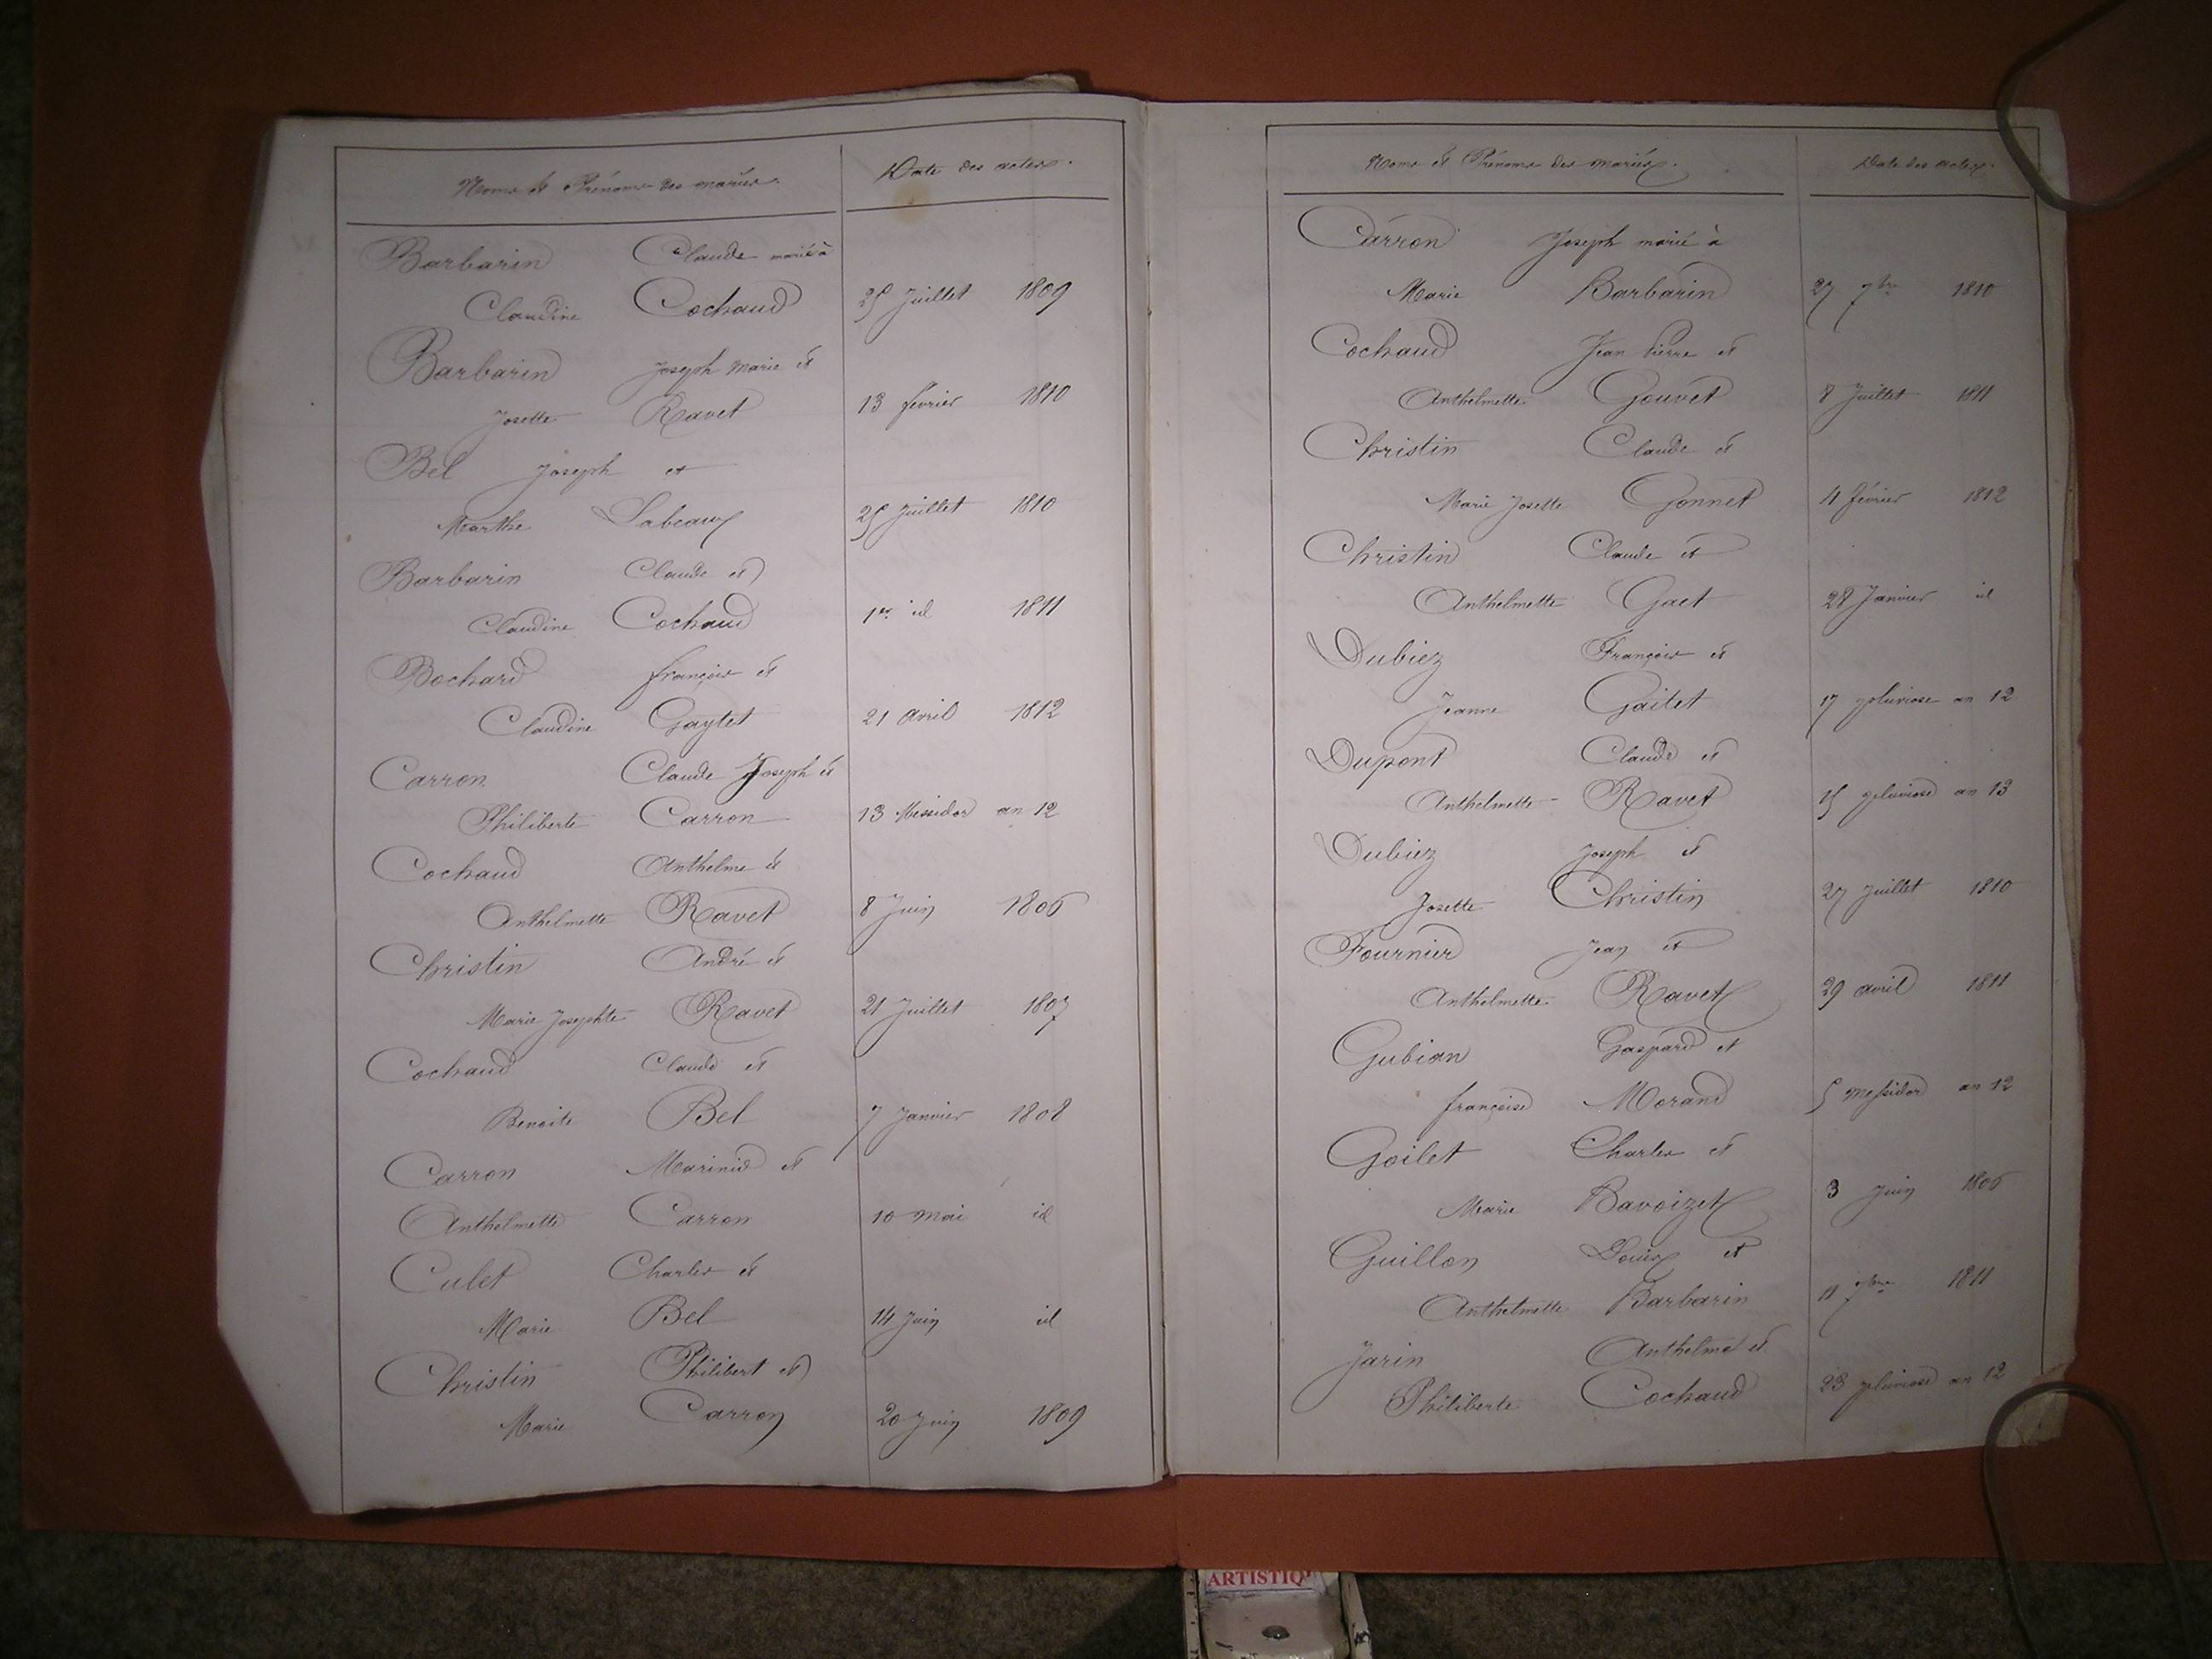 Noms et Prénoms des mariés.
Date des actes.
Barbarin Claude marié à
Claudine Cochaud 25 Juillet 1809
Barbarin Joseph Marie et
Josette Ravet 13 fevrier 1810
Bel Joseph et
Marthe Labeaux 25 Juillet 1810
Barbarin Claude et
Claudine Cochaud 1er id 1811
Bochard françois et
Claudine Gaytet 21 Avril 1812
Carron Claude Joseph et
Philiberte Carron 13 Messidor an 12
Cochaud Anthelme et
Anthelmette Ravet 8 Juin 1806
Christin André et
Marie Josephte Ravet 21 Juillet 1807
Cochaud Claude et
Benoite Bel 7 Janvier 1808
Carron et
Anthelmette Carron 10 Mai id
Culet Charles et
Marie Bel 14 Juin id
Christin Philibert et
Marie Carron 20 Juin 1809
Noms et Prénoms des mariés.
Date des actes.
Carron Joseph marié à
Marie Barbarin 27 7bre 1810
Cochaud Jean Pierre et
Anthelmette Gouvet 8 Juillet 1811
Christin Claude et
Marie Josette Gonnet 11 février 1812
Christin Claude et
Anthelmette Gaet 28 Janvier id
Dubiez François et
Jeanne Gaitet 17 pluviose an 12
Dupont Claude et
Anthelmette Ravet 15 pluviose an 13
Dubiez Joseph et
Josette Christin 27 Juillet 1810
Fournier Jean et
Anthelmette Ravet 29 avril 1811
Gubian Gaspard et
françoise Morand 5 Messidor an 12
Goilet Charles et
Marie Bavoizet 3 Juin 1806
Guillon Louis et
Anthelmette Barbarin 11 1811
Jarin Anthelme et
Philiberte Cochaud 23 pluviose an 12
ARTISTIQ